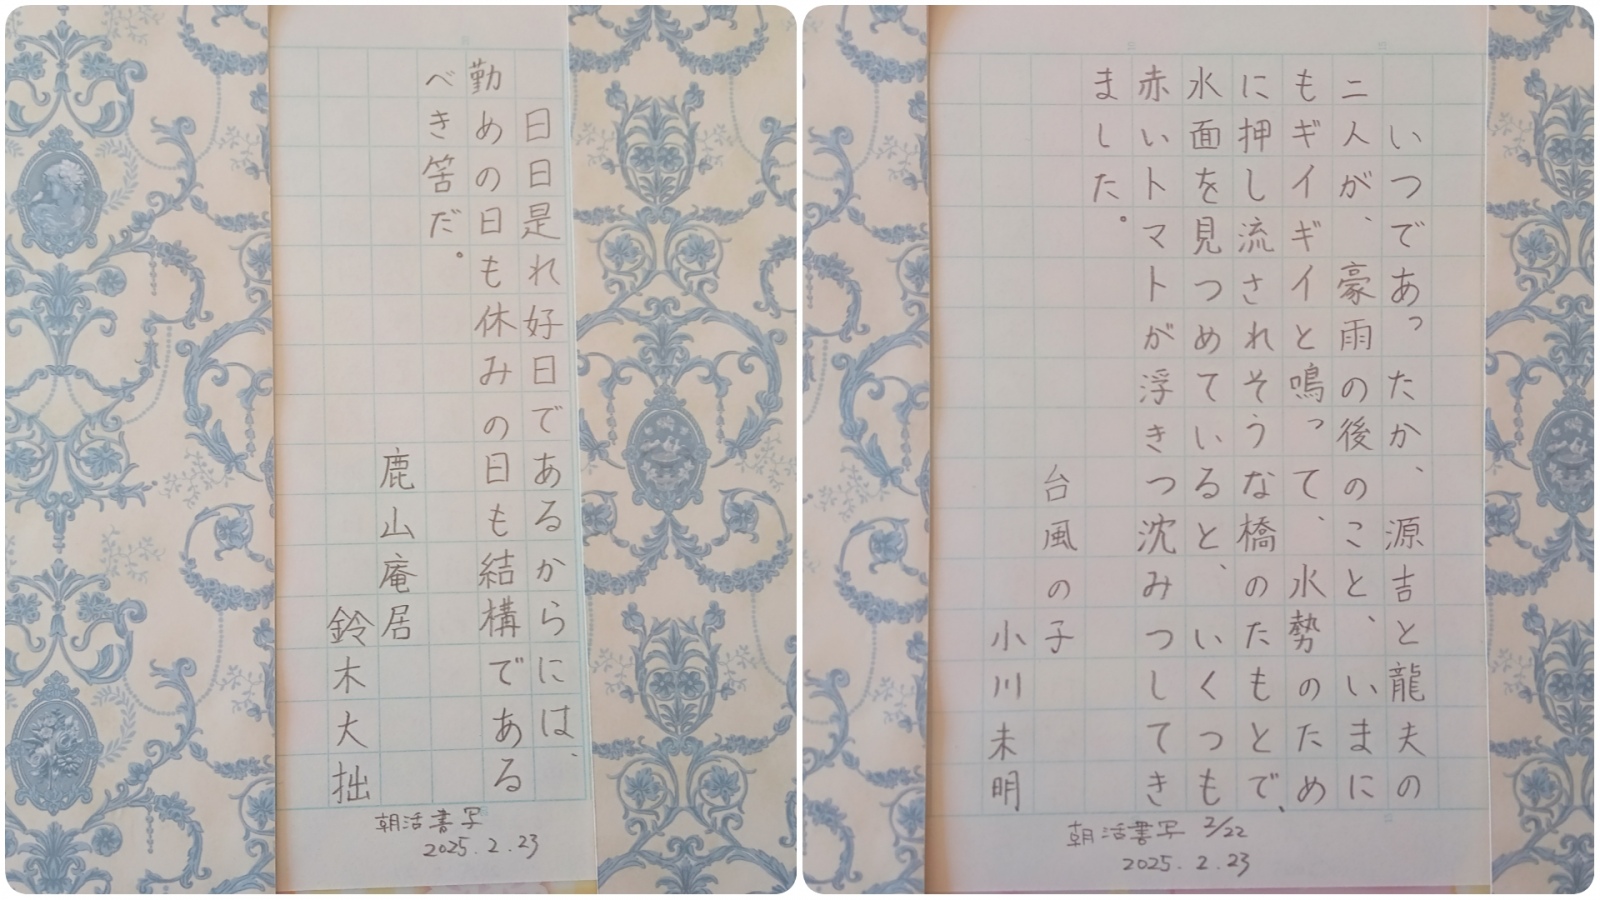 日日是れ好日であるからには、
勤めの日も休みの日も結構である
べき筈だ。
鹿山庵居
鈴木大拙
朝活書写
2025.2.23
いつであったか、源吉と龍夫の
二人が、豪雨の後のこと、いまに
もギイギイと鳴って、水勢のため
に押し流されそうな橋のたもとで、
水面を見つめていると、いくつも
赤いトマトが浮きつ沈みつしてき
ました。
台風の子
小川未明
朝活書写 2/22
2025.2.23